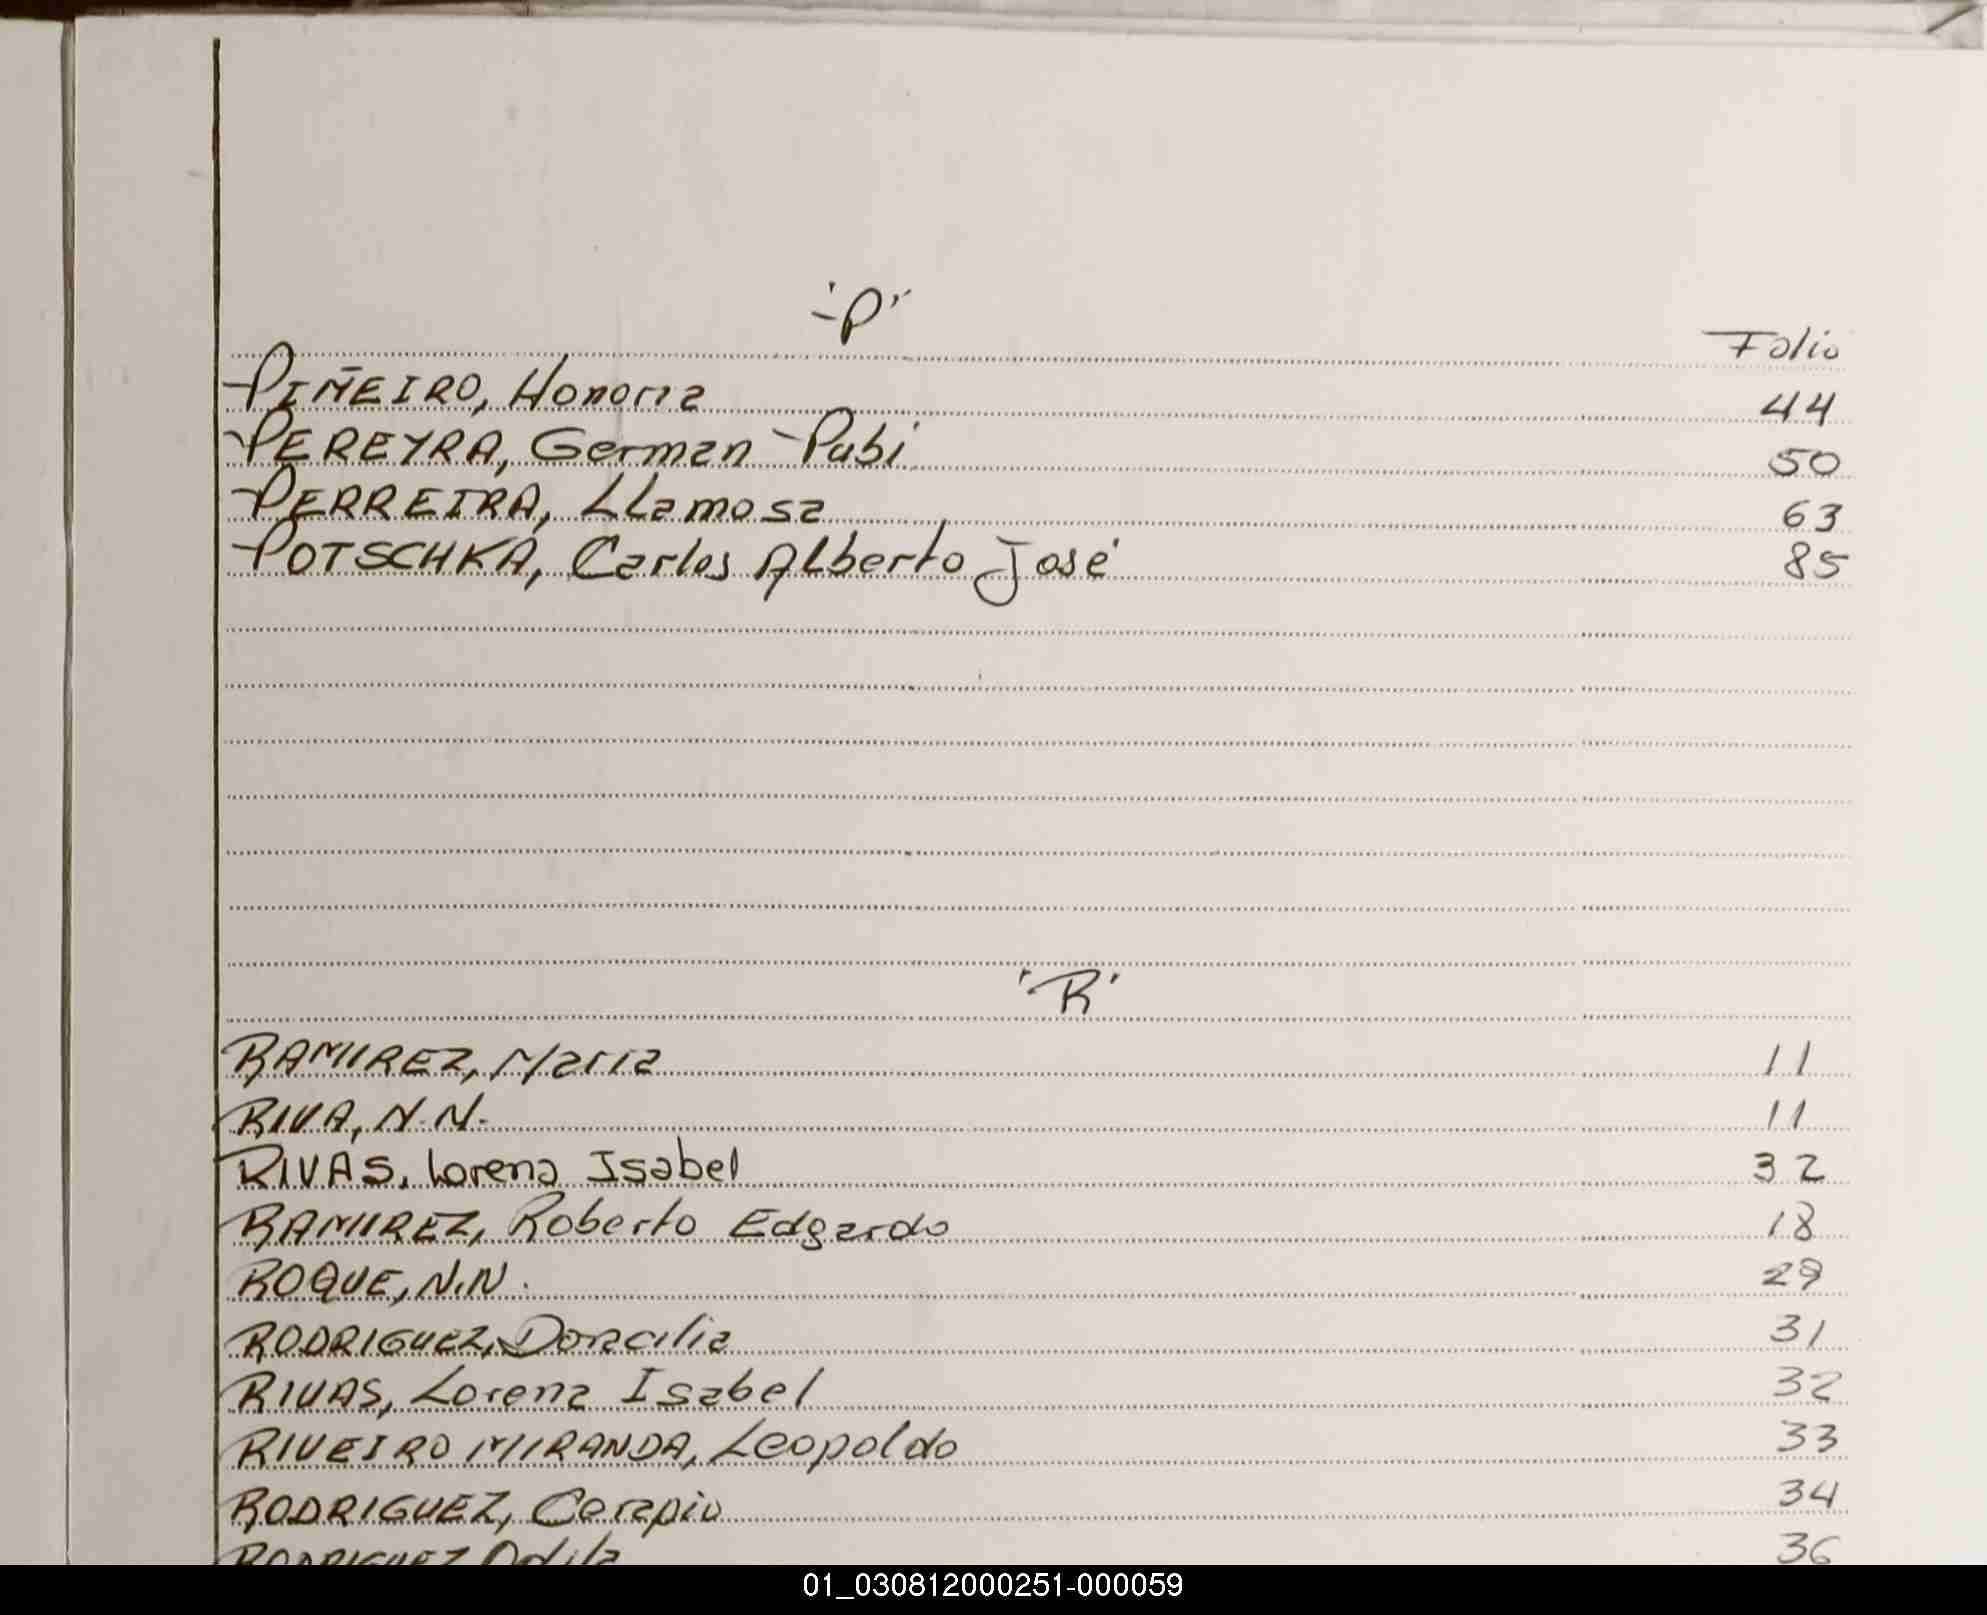 "P"
Folio
PIÑEIRO, Honoria 44
PEREYRA, German Pubi 50
PERREIRA, LLamosa 63
POTSCHKA, Carlos Alberto José 85
"R"
RAMIREZ, Maria 11
RIVA, N.N. 11
RIVAS, Lorena Isabel 32
RAMIREZ, Roberto Edgardo 18
ROQUE, N.N. 29
RODRIGUEZ, Doracilia 31
RIVAS, Lorena Isabel 32
RIVEIRO MIRANDA, Leopoldo 33
RODRIGUEZ, Cerapio 34
RODRIGUEZ Odila 36
01_030812000251-000059